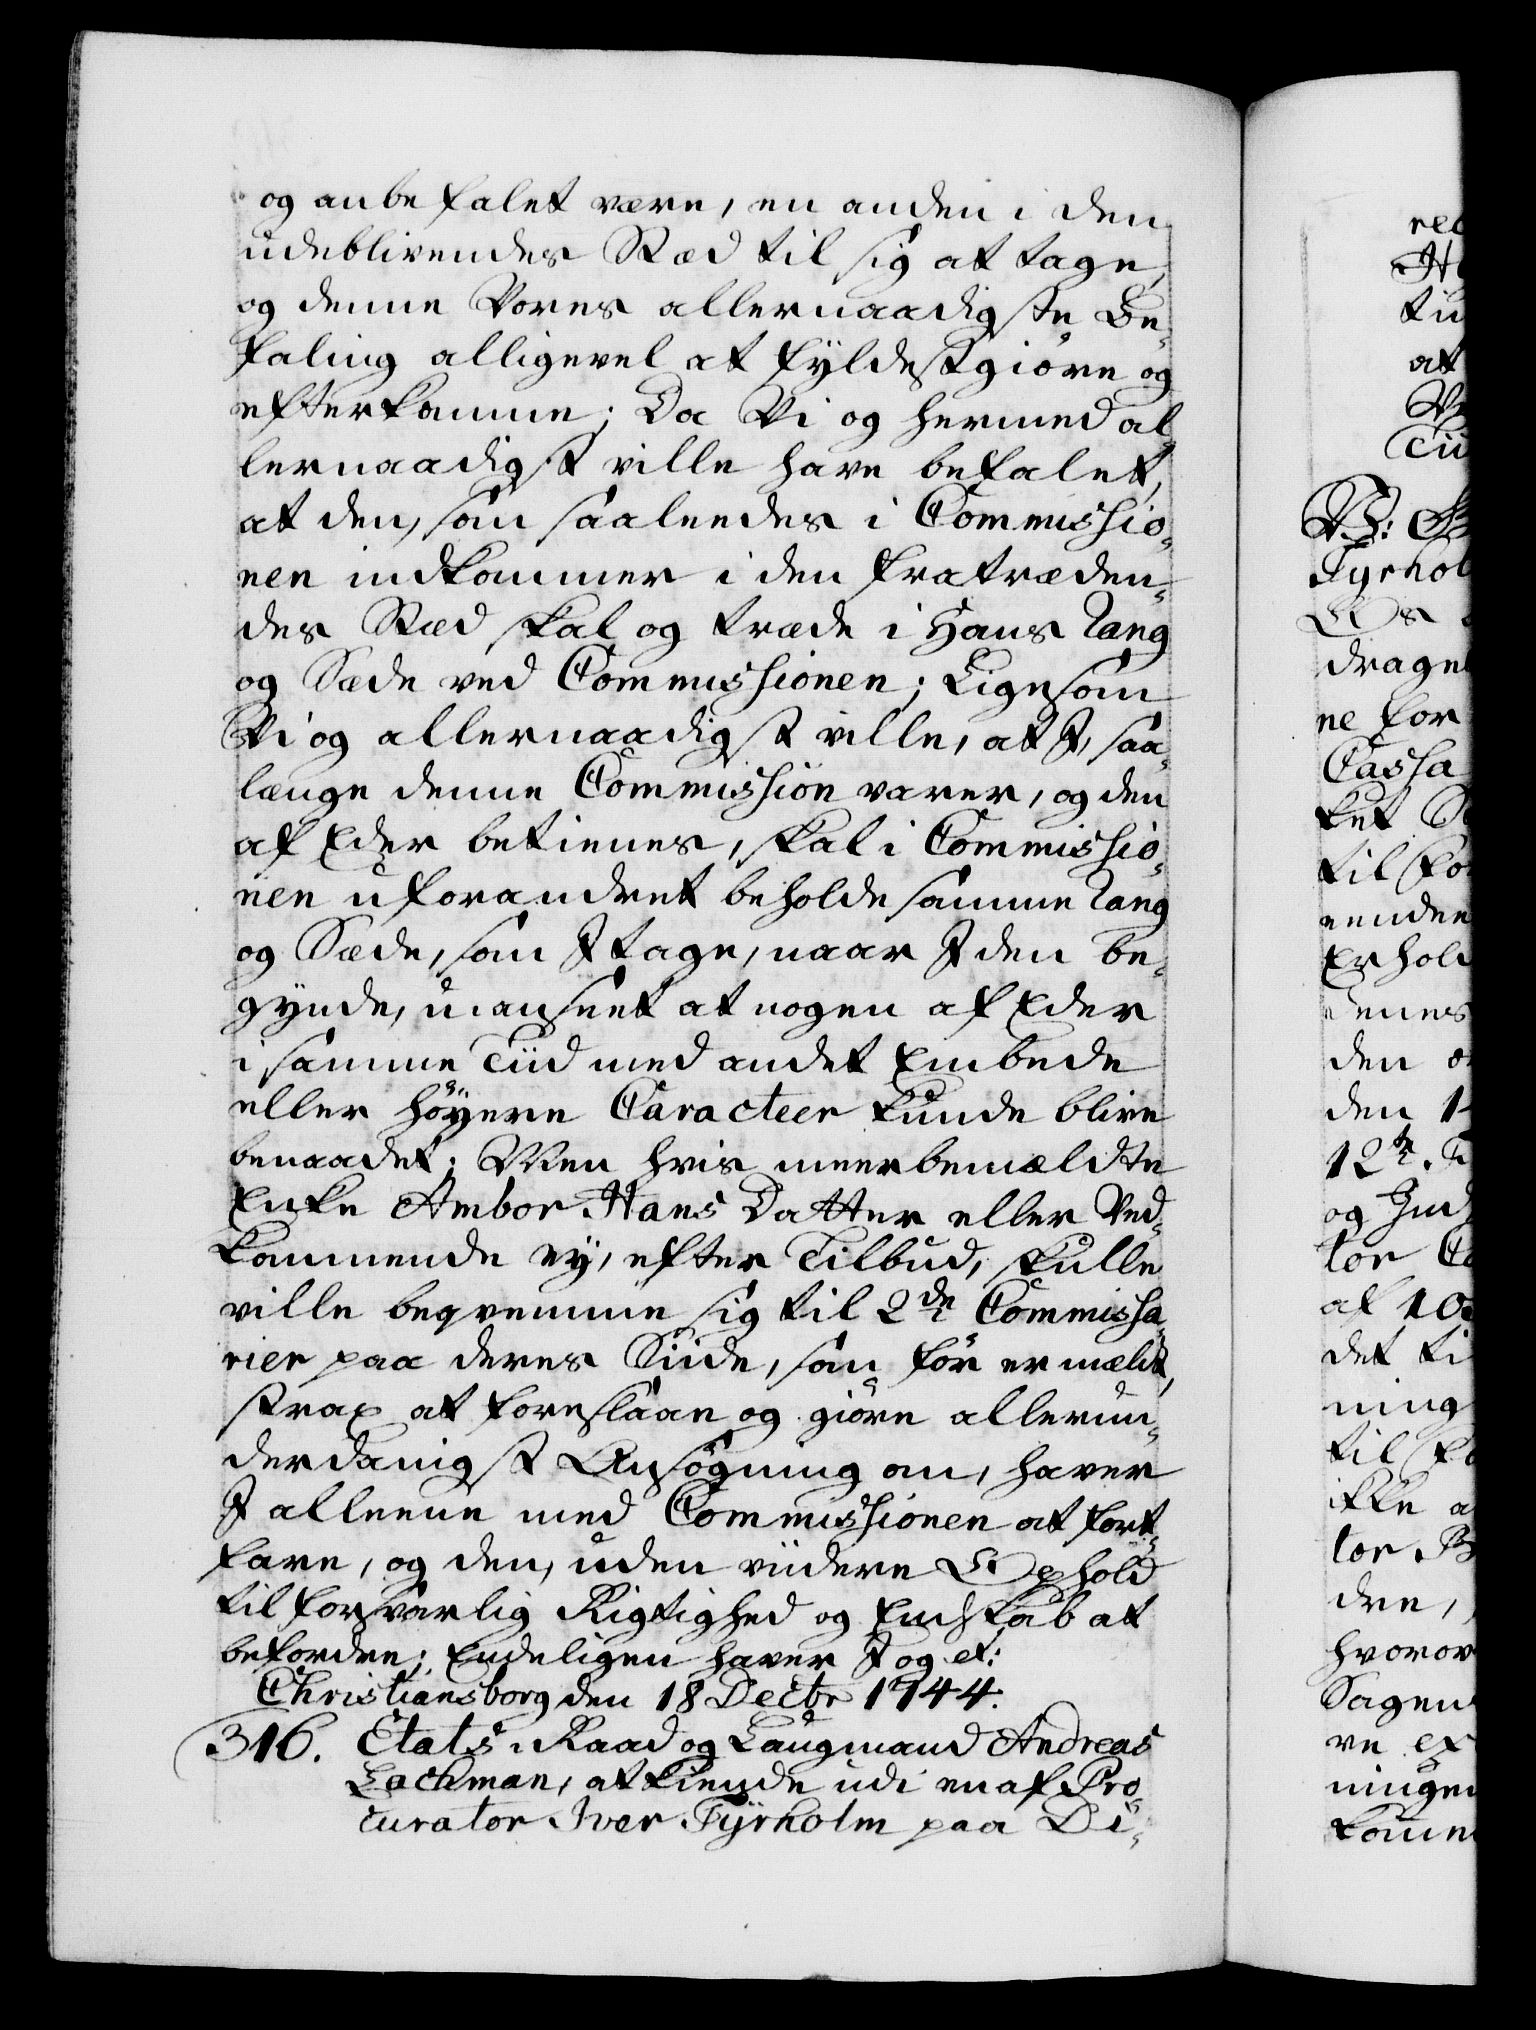 og anbefalet være, en anden i den
udeblivendes Stæd til sig at tage,
og denne Vores allernaadigste Be-
faling alligevel at fyldestgiöre og
efterkomme; Da Vi og hermed al-
lernaadigst ville have befalet,
at den, som saaleedes i Commissio-
nen indkommer i den fratræden-
des Stæd skal og træde i Hans Rang
og Sæde ved Commissionen; Ligesom
Vi og allernaadigst ville, at I, saa-
længe denne Commission varer, og den
af Eder betienes, skal i Commissio-
nen uforandret beholde samme Rang
og Sæde, som I tage, naar I den be-
gynde, uanseet at nogen af Eder
i samme Tiid med andet Embede
eller höyere Caracteer kunde blive
benaadet; Men hvis meerbemældte
Enke Ambor Hans Datter eller Ved-
kommende ey, efter Tilbud, skulle
ville beqvemme sig til 2de Commissa-
rier paa deres Siide, som för er mældt,
strax at foreslaae og giöre allerun-
derdanigst Ansögning om, haver
I alleene med Commissionen at fort-
fare, og den, uden viidere Ophold
til forsvarlig Rigtighed og Endskab at
befordre; Endeligen haver I og et:
Christiansborg den 18 Decbr 1744.
316. Etats-Raad og Laugmand Andreas
Lachman, at kiende udi en af Pro-
curator Iver Tyrholm paa Di-
rec
tu
at
Tii
Tyrhol
drage
ne for
Cassa
ket
til
Erhold
den
den 1
12te.
og Ind
tor
af 10
det ti
ning
til
ikke a
tor B
dre,
hvoror
Sagen
ve ex
ninge
komm